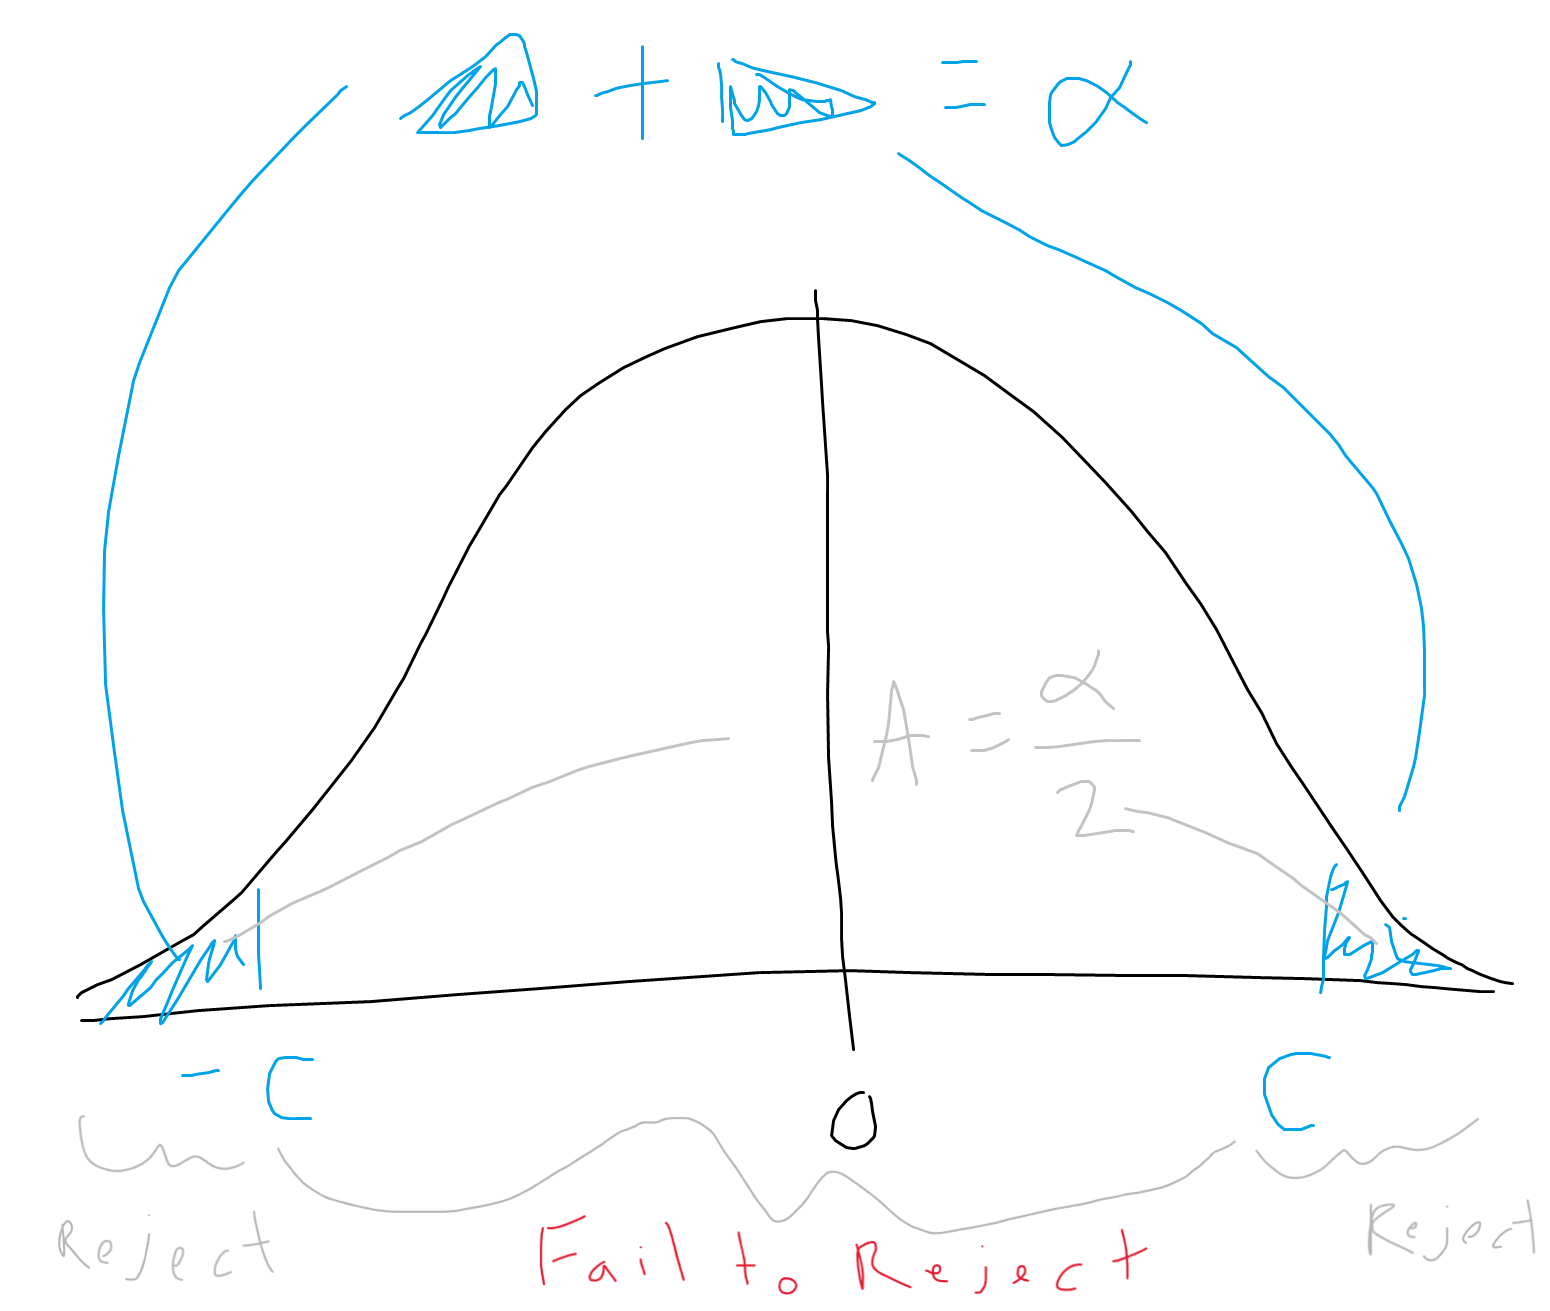 + = α
A = α/2
-C 0 C
Reject Fail to Reject Reject